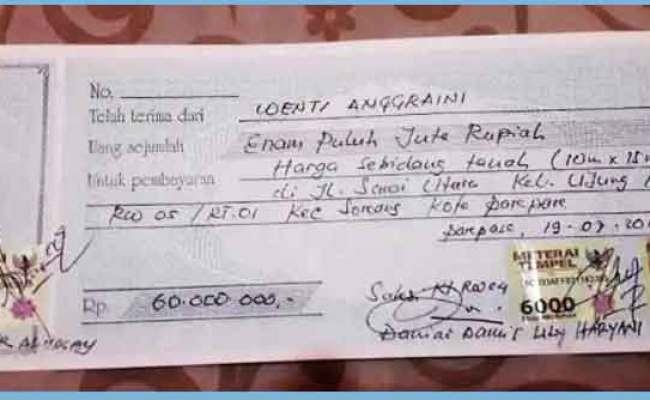 No.
Telah terima dari WENTI ANGGRAINI
Uang sejumlah Enam Puluh Juta Rupiah
Untuk pembayaran Harga Sebidang tanah (10m x 15m
di Jl. Utara Kel. Ujung
RW 05 / RT.01 Kec Soreang Kota parepare
parepare, 19-07-20
METERAI
TEMPEL
6000
Rp. 60.000.000,-
Saksi RW 05
Damis Lily HARYANI